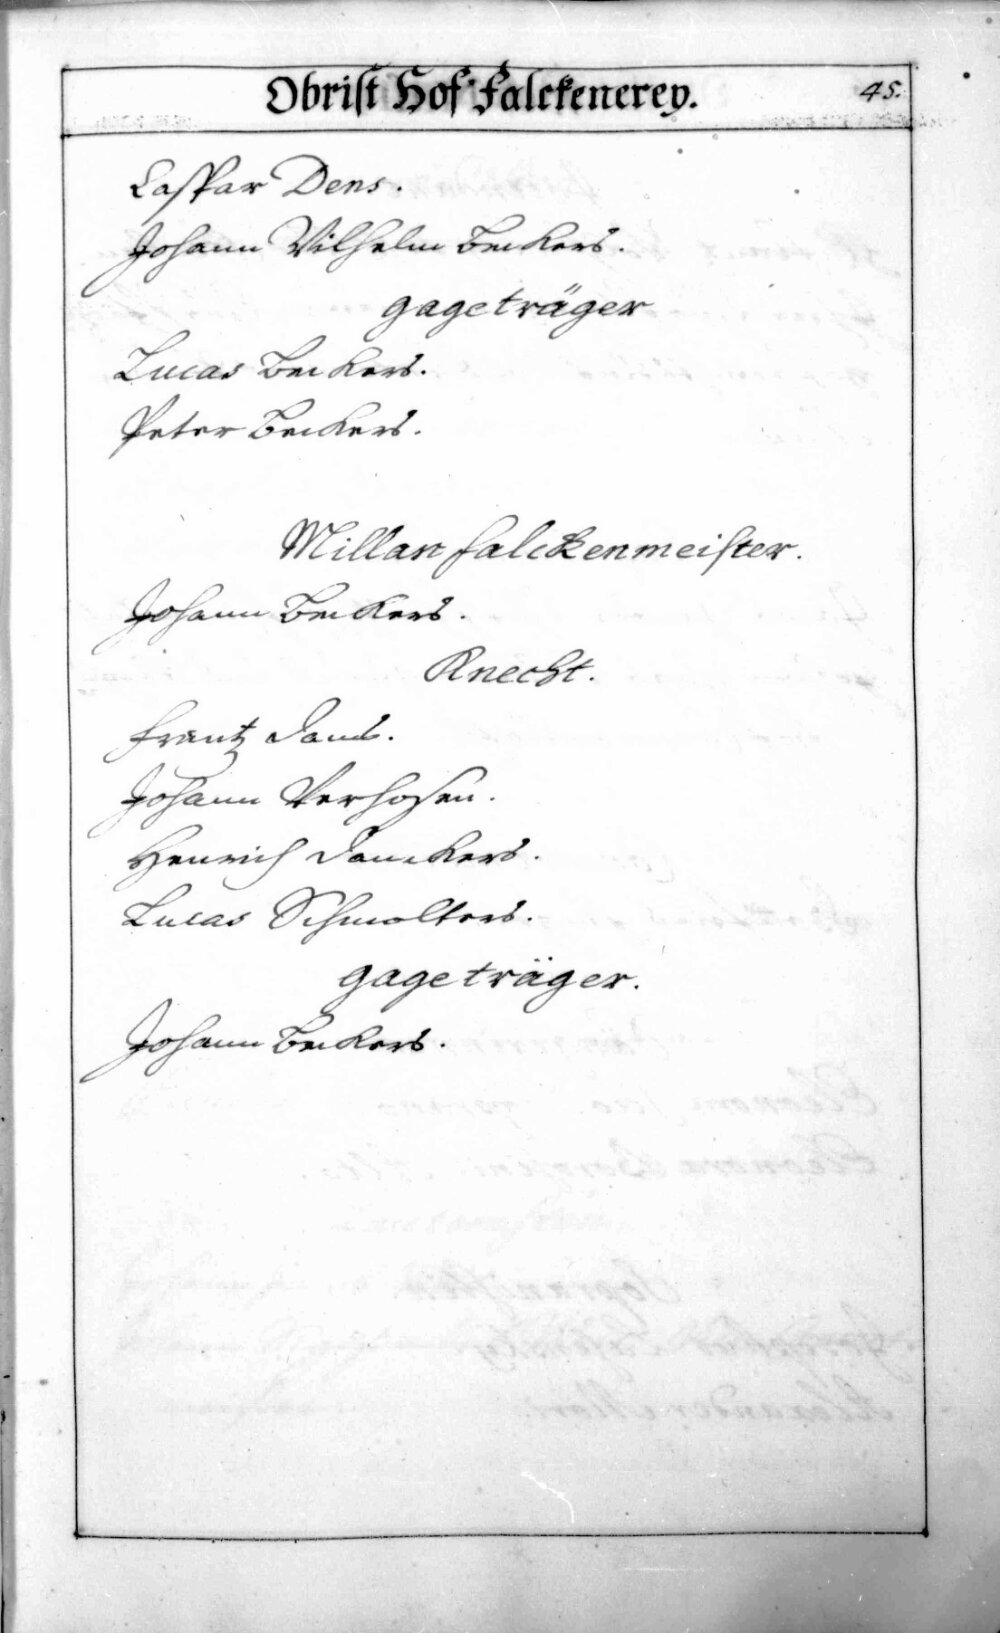 Obrist Hof Falckenerey.
45.
Casspar Dens.
Johann Wilhelm Beckers.
gageträger
Lucas Beckers.
Peter Beckers.
Millan falckenmeister.
Johann Beckers.
Knecht.
Frantz Dams.
Johann Verhosen.
Henrich Danckers.
Lucas Schmolters.
gageträger.
Johann Beckers.